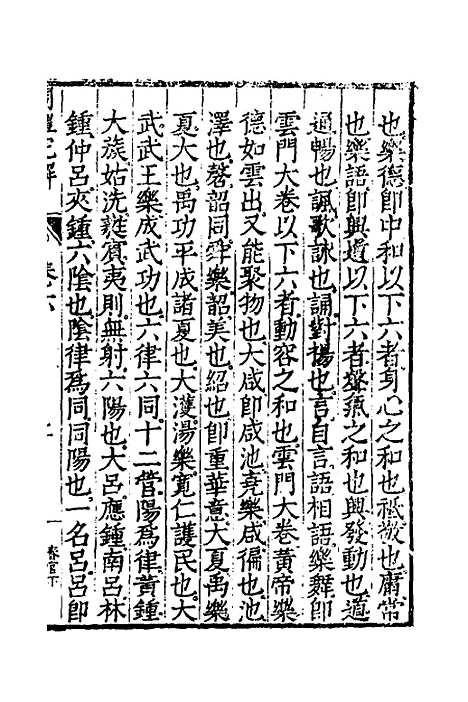 也樂德即中和以下六者身心之和也祗敬也庸常
也樂語即興道以下六者聲氣之和也興發動也道
通暢也諷歌詠也誦對揚也言自言語相語樂舞即
雲門大卷以下六者動容之和也雲門大卷黃帝樂
德如雲出又能聚物也大咸即咸池堯樂咸徧也池
澤也磬韶同舜樂韶美也紹也即重華意大夏禹樂
夏大也禹功平成諸夏也大濩湯樂寬仁護民也大
武武王樂成武功也六律六同十二管陽為律黃鍾
大蔟姑洗蕤賓夷則無射六陽也大呂應鍾南呂林
鍾仲呂夾鍾六陰也陰律爲同同陽也一名呂呂即
卷六
春官下